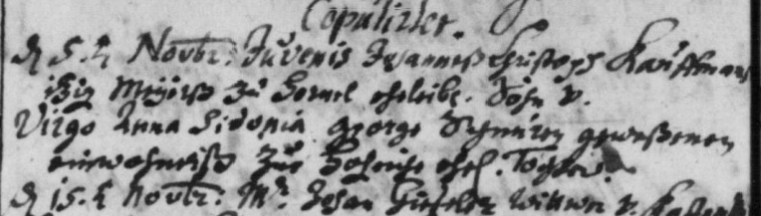 Copulirte.
d 5. t Novbr: Juvenis Johanneß Christoph Kauffmans
itzig Meyerß zu eheleibl. Sohn v.
Virgo Anna Sidonia George Schnürer geweßenen
einwohnerß zue ehel. Tochter.
d 15. t Novbr: Mr. Johan Wittwer v.